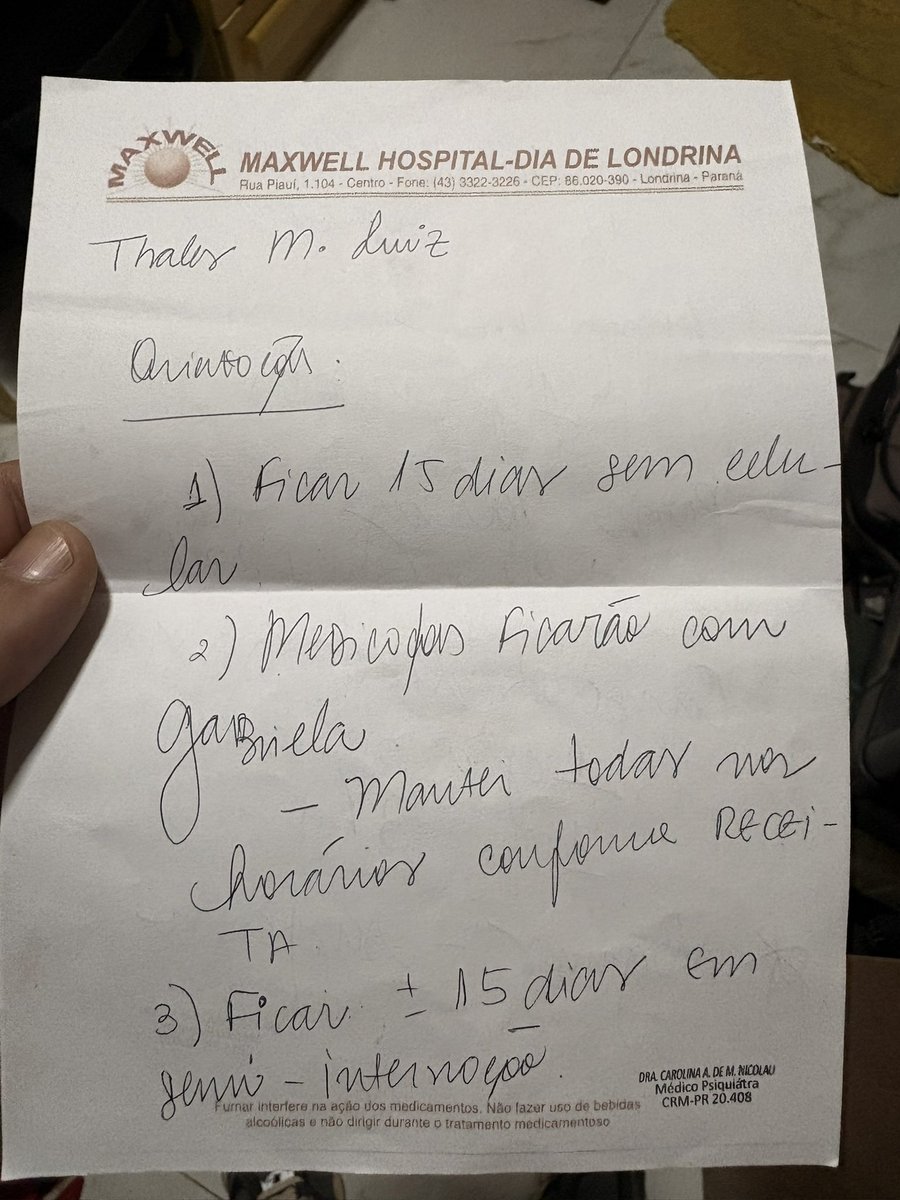 MAXWELL
MAXWELL HOSPITAL-DIA DE LONDRINA
Rua Piauí, 1.104 - Centro - Fone: (43) 3322-3226 - CEP: 86.020-390 - Londrina - Paraná
Thales M. Luiz
Orientação.
1) Ficar 15 dias sem celu-
lar
2) Medicações ficarão com
Gabriela
- Manter todas nos
horários conforme RECEI-
TA
3) Ficar ± 15 dias em
semi-internação.
DRA. CAROLINA A. DE M. NICOLAU
Médico Psiquiátra
CRM-PR 20.408
Fumar interfere na ação dos medicamentos. Não fazer uso de bebidas
alcoólicas e não dirigir durante o tratamento medicamentoso